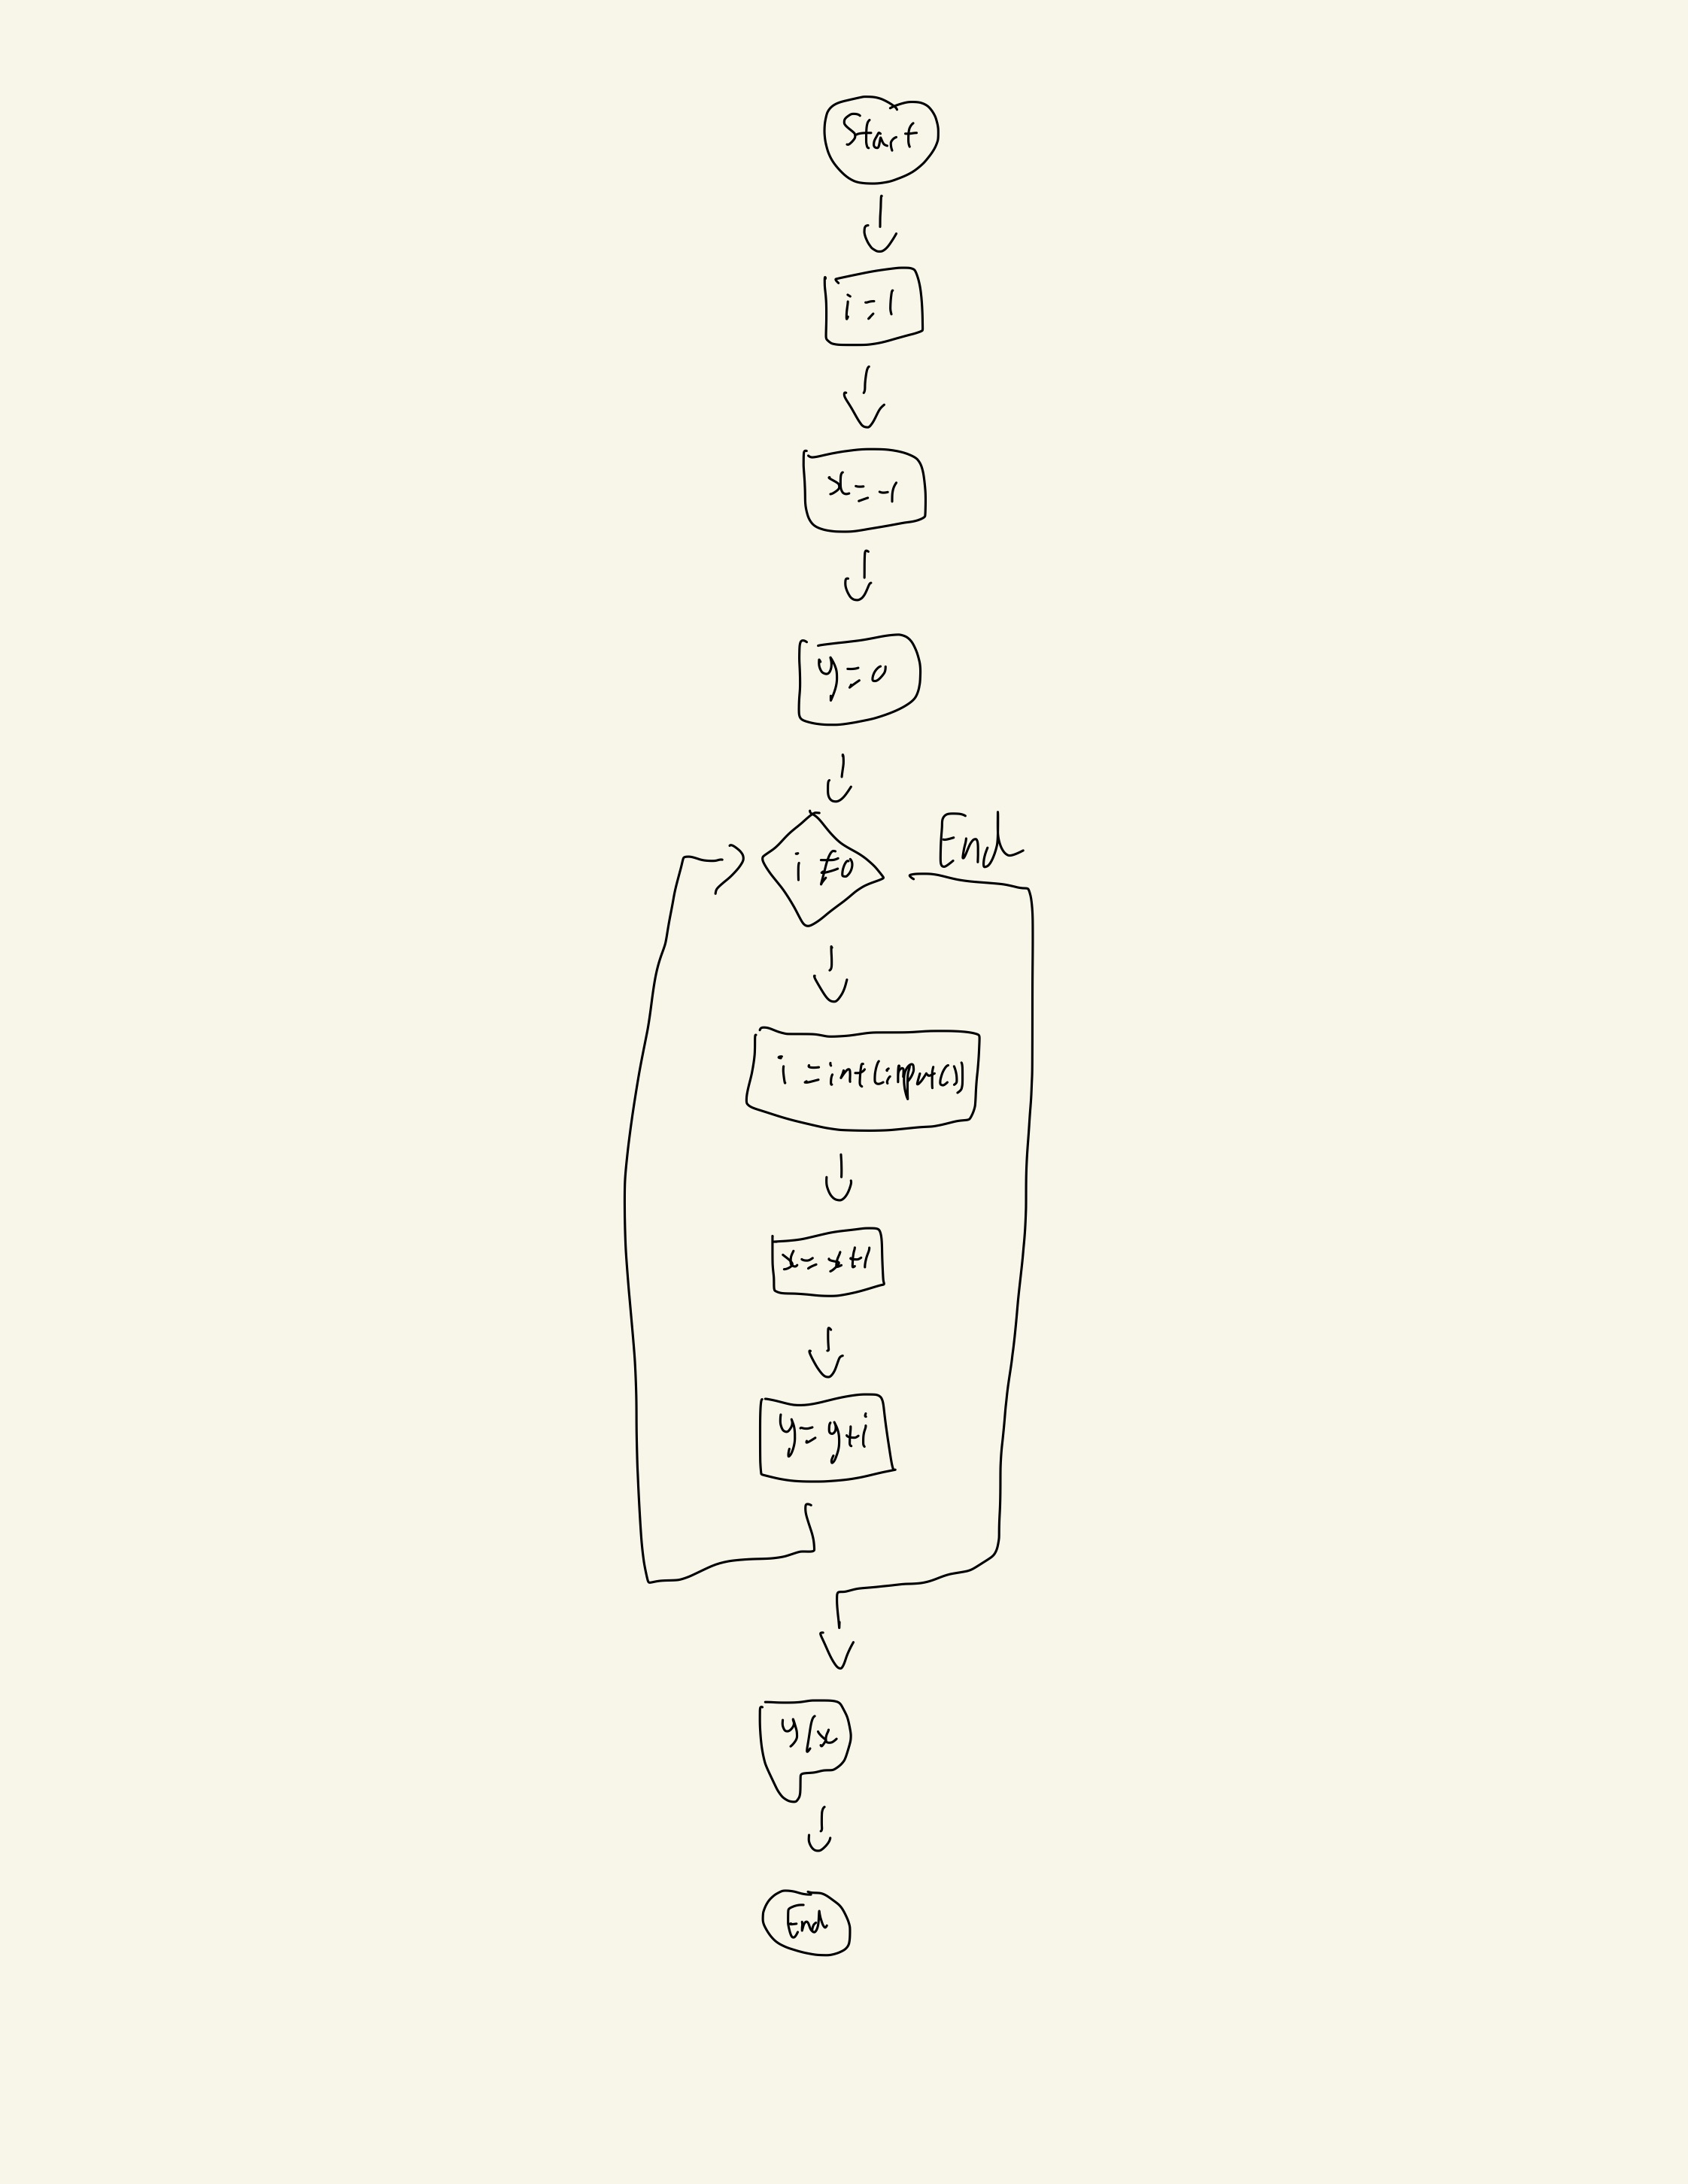 Start
i = 1
x = -1
y = 0
i ≠ 0
End
i = int(input())
x = x+1
y = y+i
y/x
End